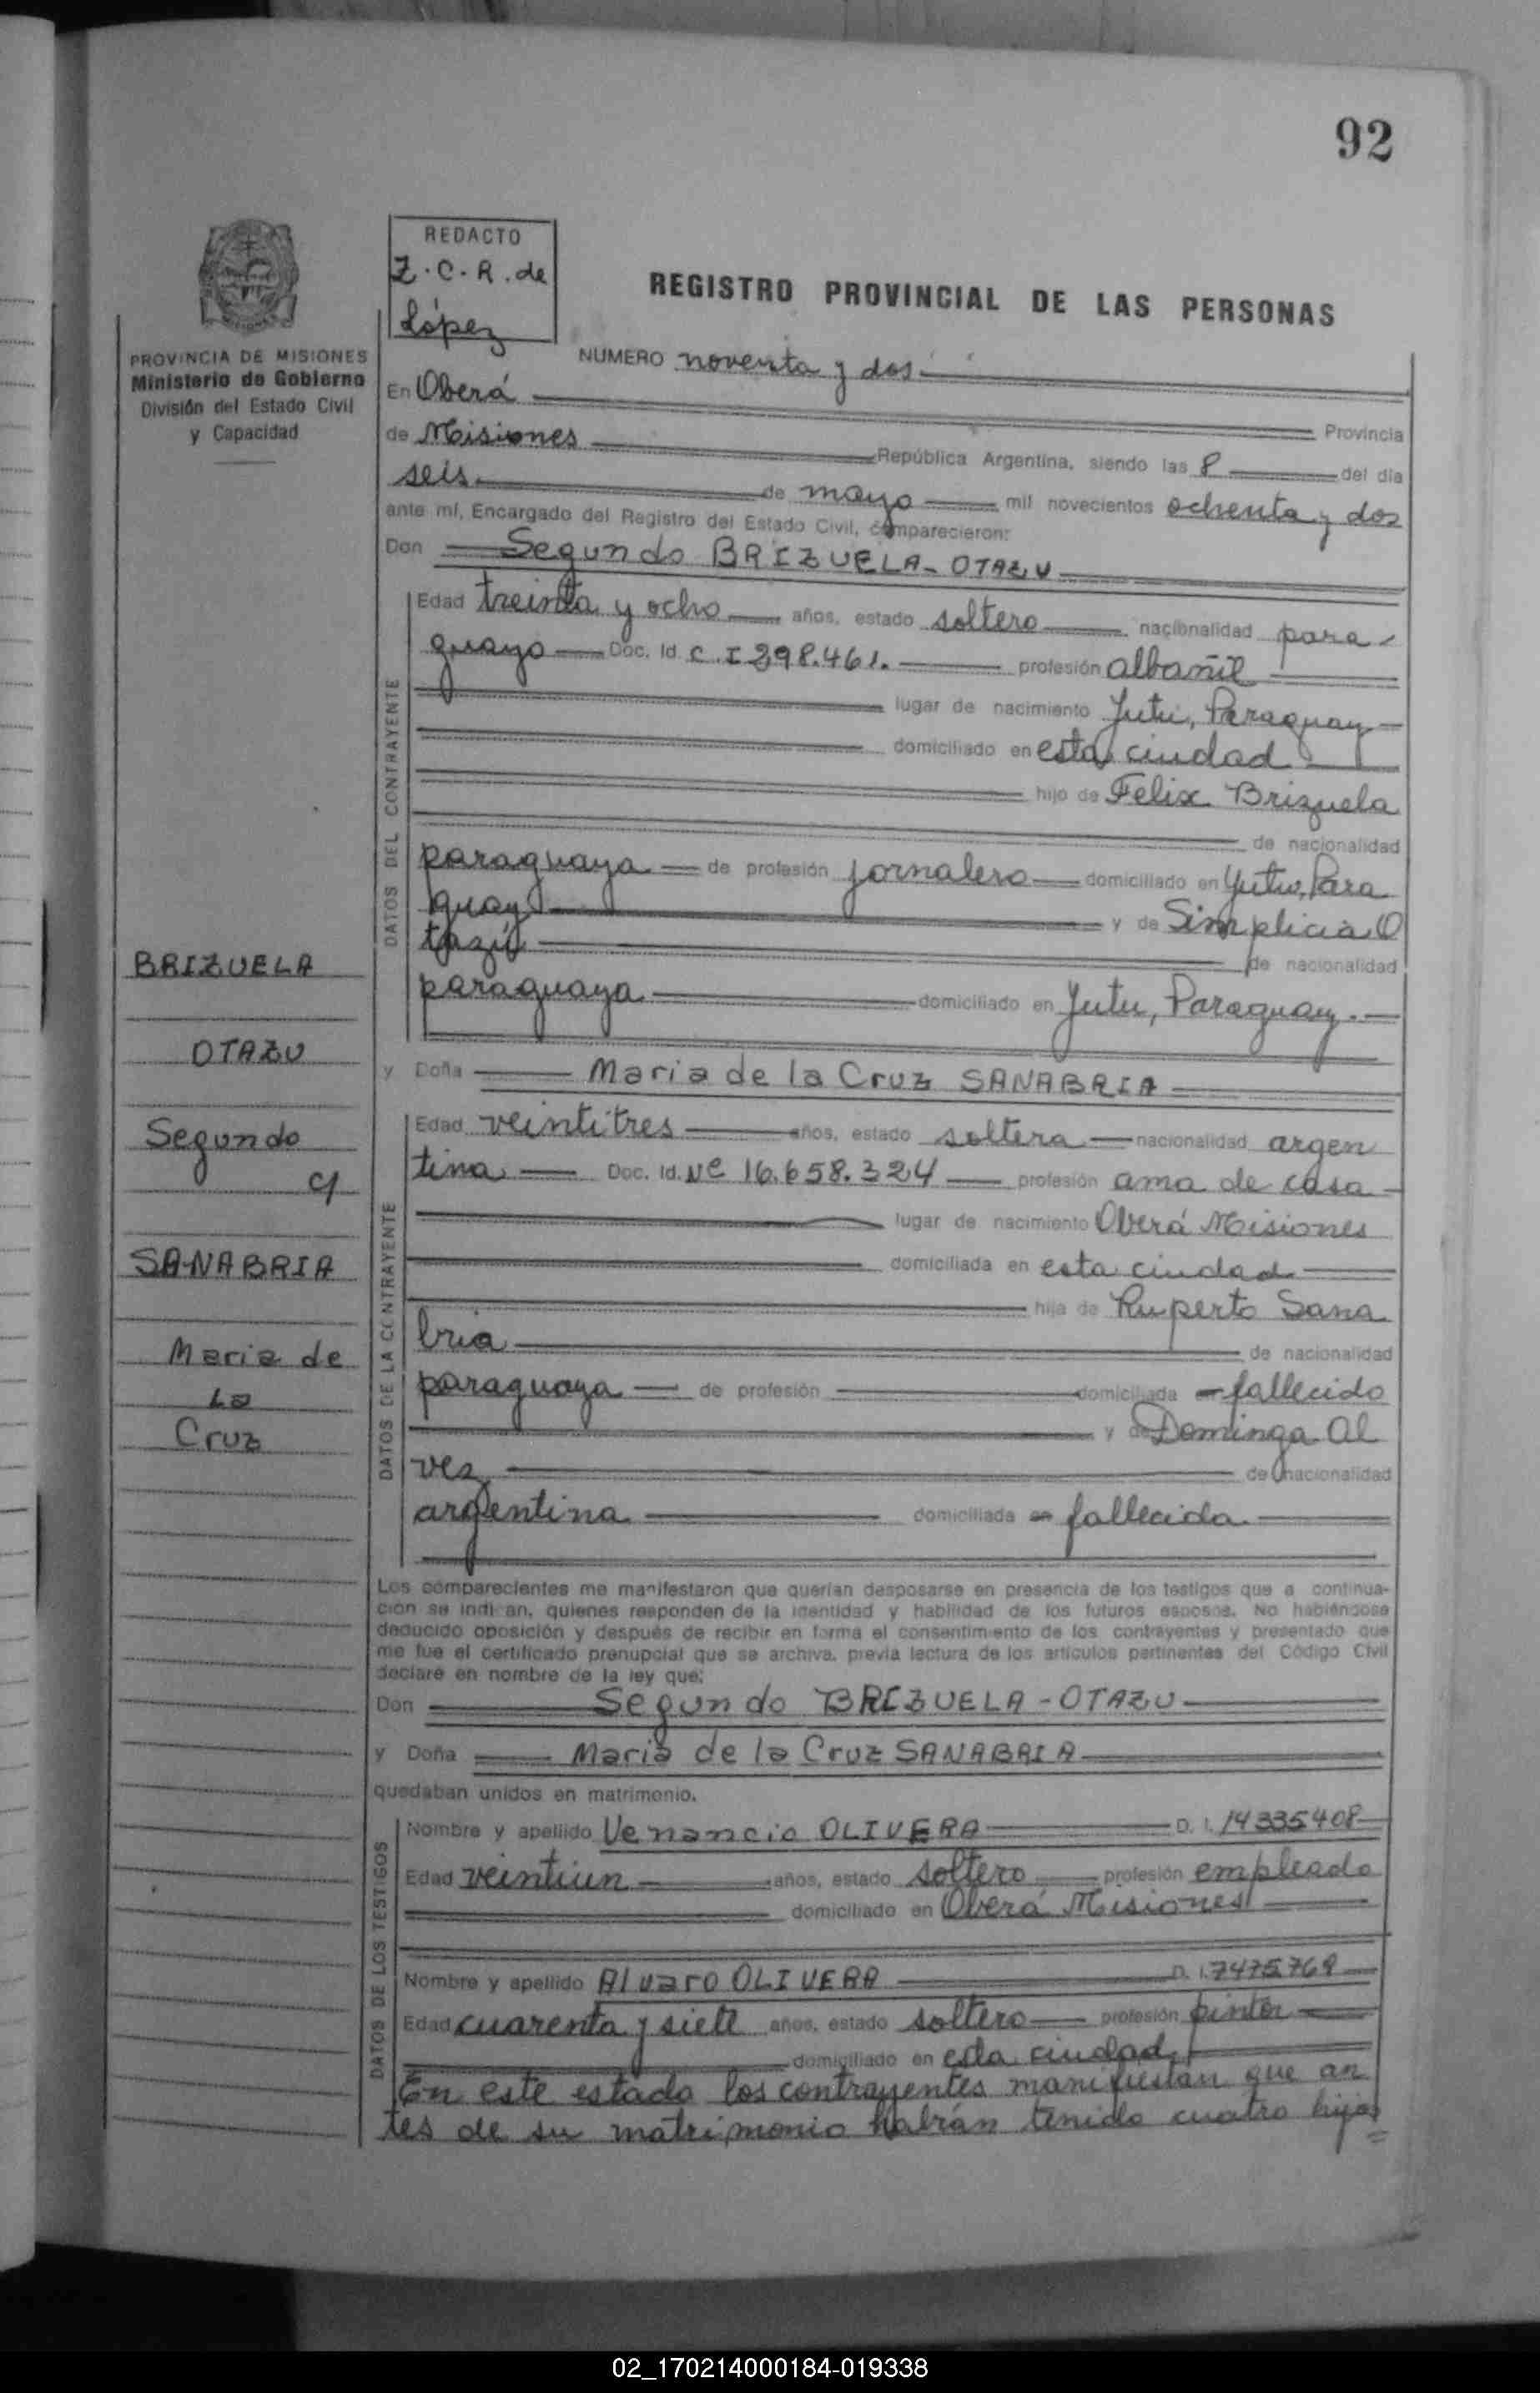 92
REDACTO
Z. C. R. de
López
REGISTRO PROVINCIAL DE LAS PERSONAS
PROVINCIA DE MISIONES
Ministerio de Gobierno
División del Estado Civil
y Capacidad
NUMERO noventa y dos
En Oberá Provincia
de Misiones República Argentina, siendo las 8 del día
seis de mayo mil novecientos ochenta y dos
ante mí, Encargado del Registro del Estado Civil, comparecieron:
Don Segundo BRIZUELA-OTAZU
DATOS DEL CONTRAYENTE
Edad treinta y ocho años, estado soltero nacionalidad para
guayo Doc. Id. C.I 298.461. profesión albañil
lugar de nacimiento Yutu, Paraguay
domiciliado en esta ciudad
hijo de Felix Brizuela
de nacionalidad
paraguaya de profesión jornalero domiciliado en Yutu, Para
guay y de Simplicia O
tazú de nacionalidad
paraguaya domiciliado en Yutu, Paraguay.
y Doña Maria de la Cruz SANABRIA
DATOS DE LA CONTRAYENTE
Edad veintitres años, estado soltera nacionalidad argen
tina Doc. Id. Nº 16.658.324 profesión ama de casa
lugar de nacimiento Oberá Misiones
domiciliada en esta ciudad
hija de Ruperto Sana
bria de nacionalidad
paraguaya de profesión domiciliada fallecido
y de Dominga Al
vez de nacionalidad
argentina domiciliada en fallecida
BRIZUELA
OTAZU
Segundo
c/
SANABRIA
Maria de
La
Cruz
Los comparecientes me manifestaron que querían desposarse en presencia de los testigos que a continua-
ción se indi an, quienes responden de la identidad y habilidad de los futuros esposos. No habiéndose
deducido oposición y después de recibir en forma el consentimiento de los contrayentes y presentado que
me fue el certificado prenupcial que se archiva, previa lectura de los artículos pertinentes del Código Civil
declaré en nombre de la ley que:
Don Segundo BRIZUELA-OTAZU
y Doña Maria de la Cruz SANABRIA
quedaban unidos en matrimonio.
DATOS DE LOS TESTIGOS
Nombre y apellido Venancio OLIVERA D. I. 14335408
Edad veintiun años, estado soltero profesión empleado
domiciliado en Oberá Misiones
Nombre y apellido Alvaro OLIVERA D. I. 7475769
Edad cuarenta y siete años, estado soltero profesión pintor
domiciliado en esta ciudad
En este estado los contrayentes manifiestan que an
tes de su matrimonio habrán tenido cuatro hijos
02_170214000184-019338